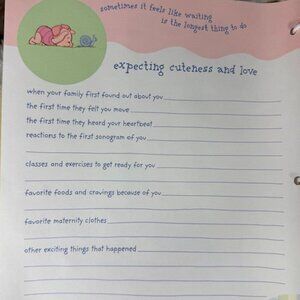 sometimes it feels like waiting
is the longest thing to do
expecting cuteness and love
when your family first found out about you
the first time they felt you move
the first time they heard your heartbeat
reactions to the first sonogram of you
classes and exercises to get ready for you
favorite foods and cravings because of you
favorite maternity clothes
other exciting things that happened